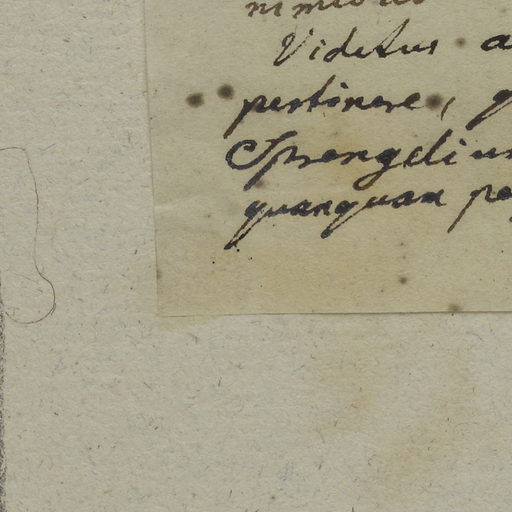 Videtur a
pertinere,
Sprengeliu
quanquam